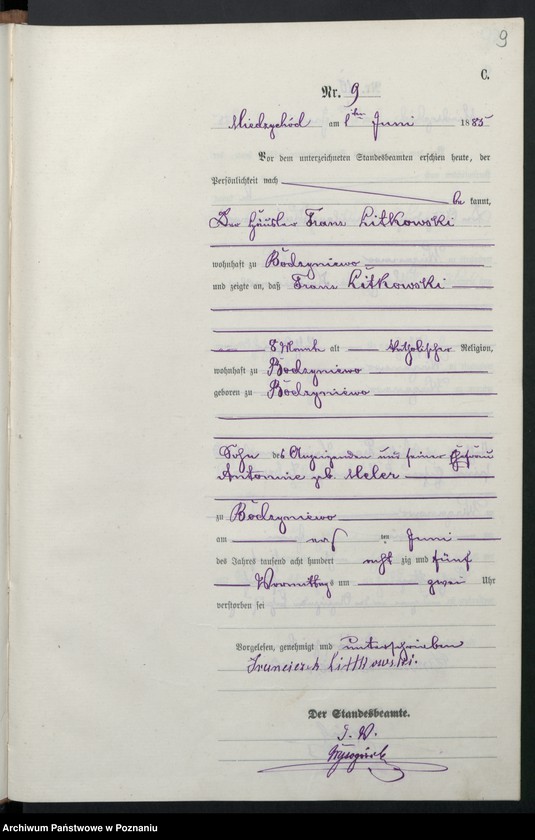 9
C.
Nr. 9
Miedzychód am 1ten Juni 1885
Vor dem unterzeichneten Standesbeamten erschien heute, der
Persönlichkeit nach
be kannt,
Der Häusler Franz Litkowski
wohnhaft zu Bodzyniewo
und zeigte an, daß Franz Litkowski
8 Monate alt katholischer Religion,
wohnhaft zu Bodzyniewo
geboren zu Bodzyniewo
Sohn des Anzeigenden und seiner Ehefrau
Antonie geb. Meler
zu Bodzyniewo
am ten Juni
des Jahres tausend acht hundert acht zig und fünf
Vormittags um zwei Uhr
verstorben sei
Vorgelesen, genehmigt und unterschrieben
Franciszek Litkowski.
Der Standesbeamte.
J. V.
Archiwum Państwowe w Poznaniu